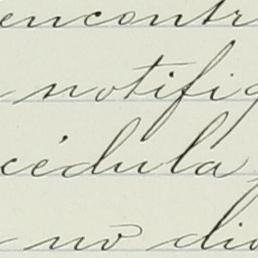 encontr
notifiq
cédula
no dio